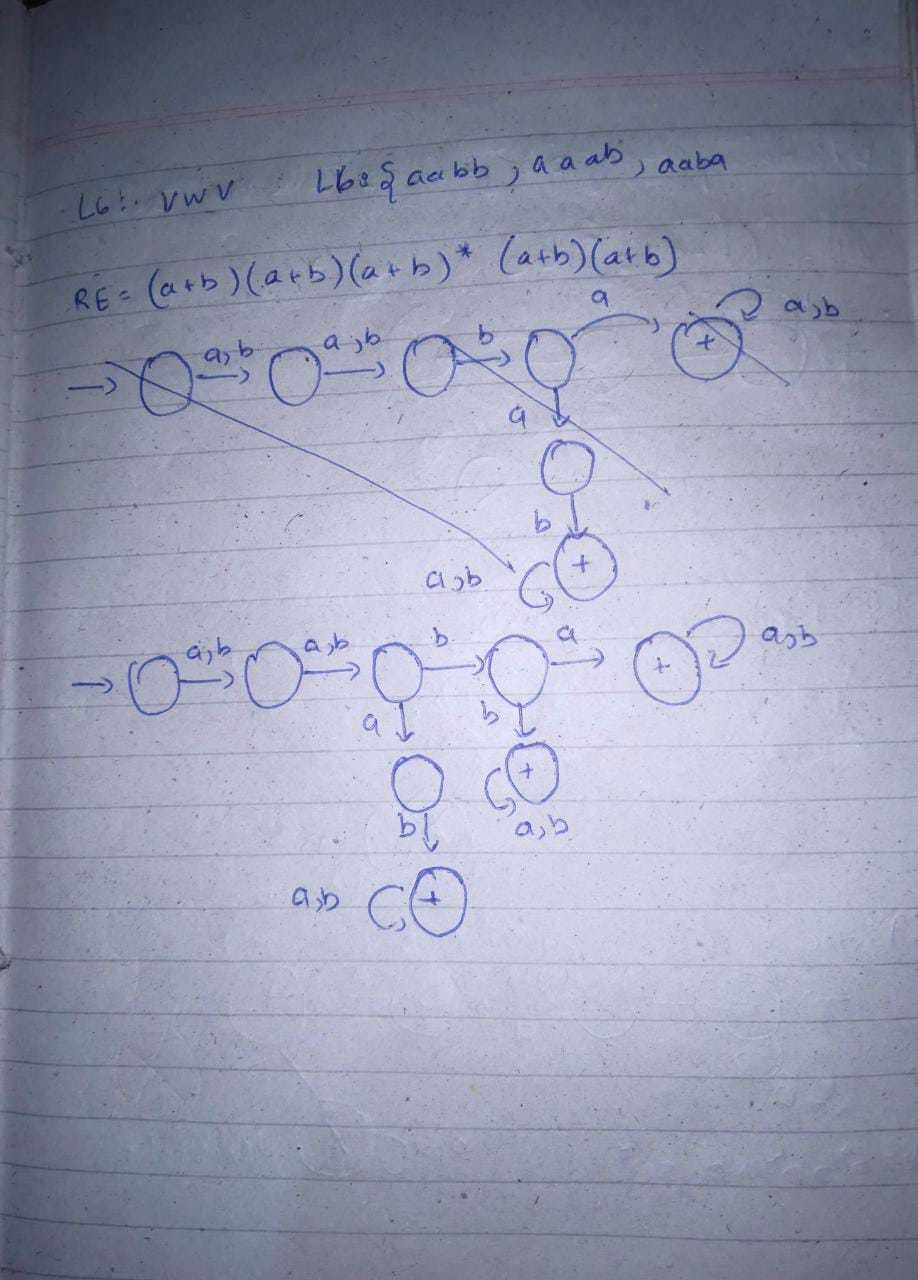 L6:. VWV L6: { aabb, aaab, aaba
RE= (a+b)(a+b)(a+b)* (a+b)(a+b)
a,b a,b b a a,b
+
a
b
+
a,b
a,b a,b b a a,b
+
a b
+
b a,b
a,b +